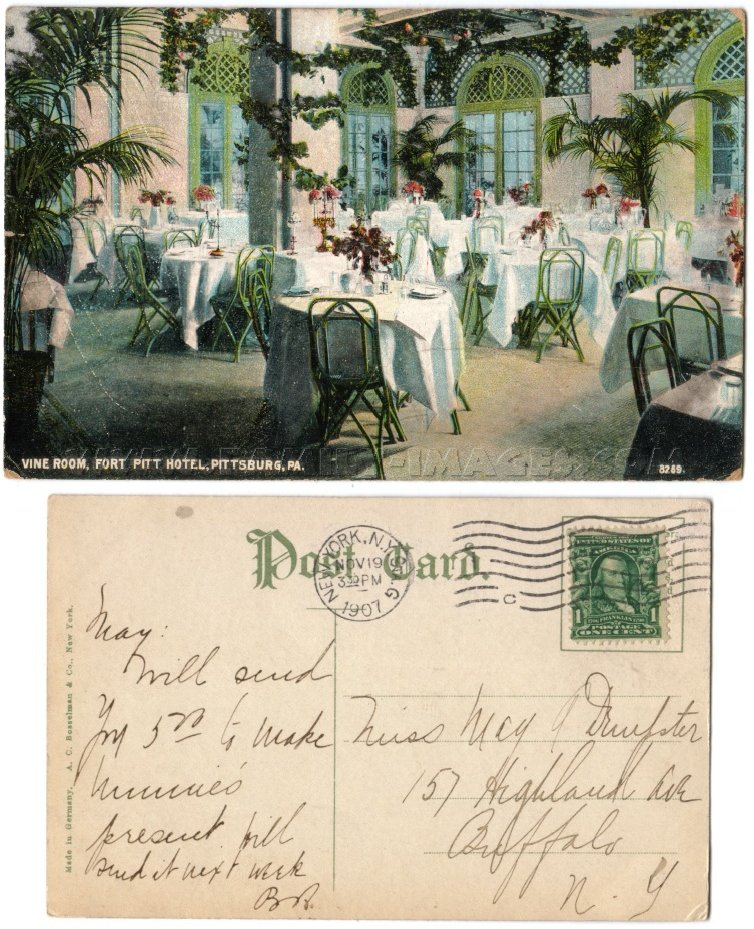 VINE ROOM, FORT PITT HOTEL, PITTSBURG, PA.
8269.
Post Card.
NEW YORK, N.Y.
NOV 19
3 30 PM
1907
C
UNITED STATES OF
AMERICA
1 FRANKLIN 1
POSTAGE
ONE CENT
Made in Germany. A. C. Bosselman & Co., New York.
May:
Will send
you 5 00 to make
Minnie's
present will
send it next week
Miss May Dempster
157 Highland Ave
Buffalo
N. Y